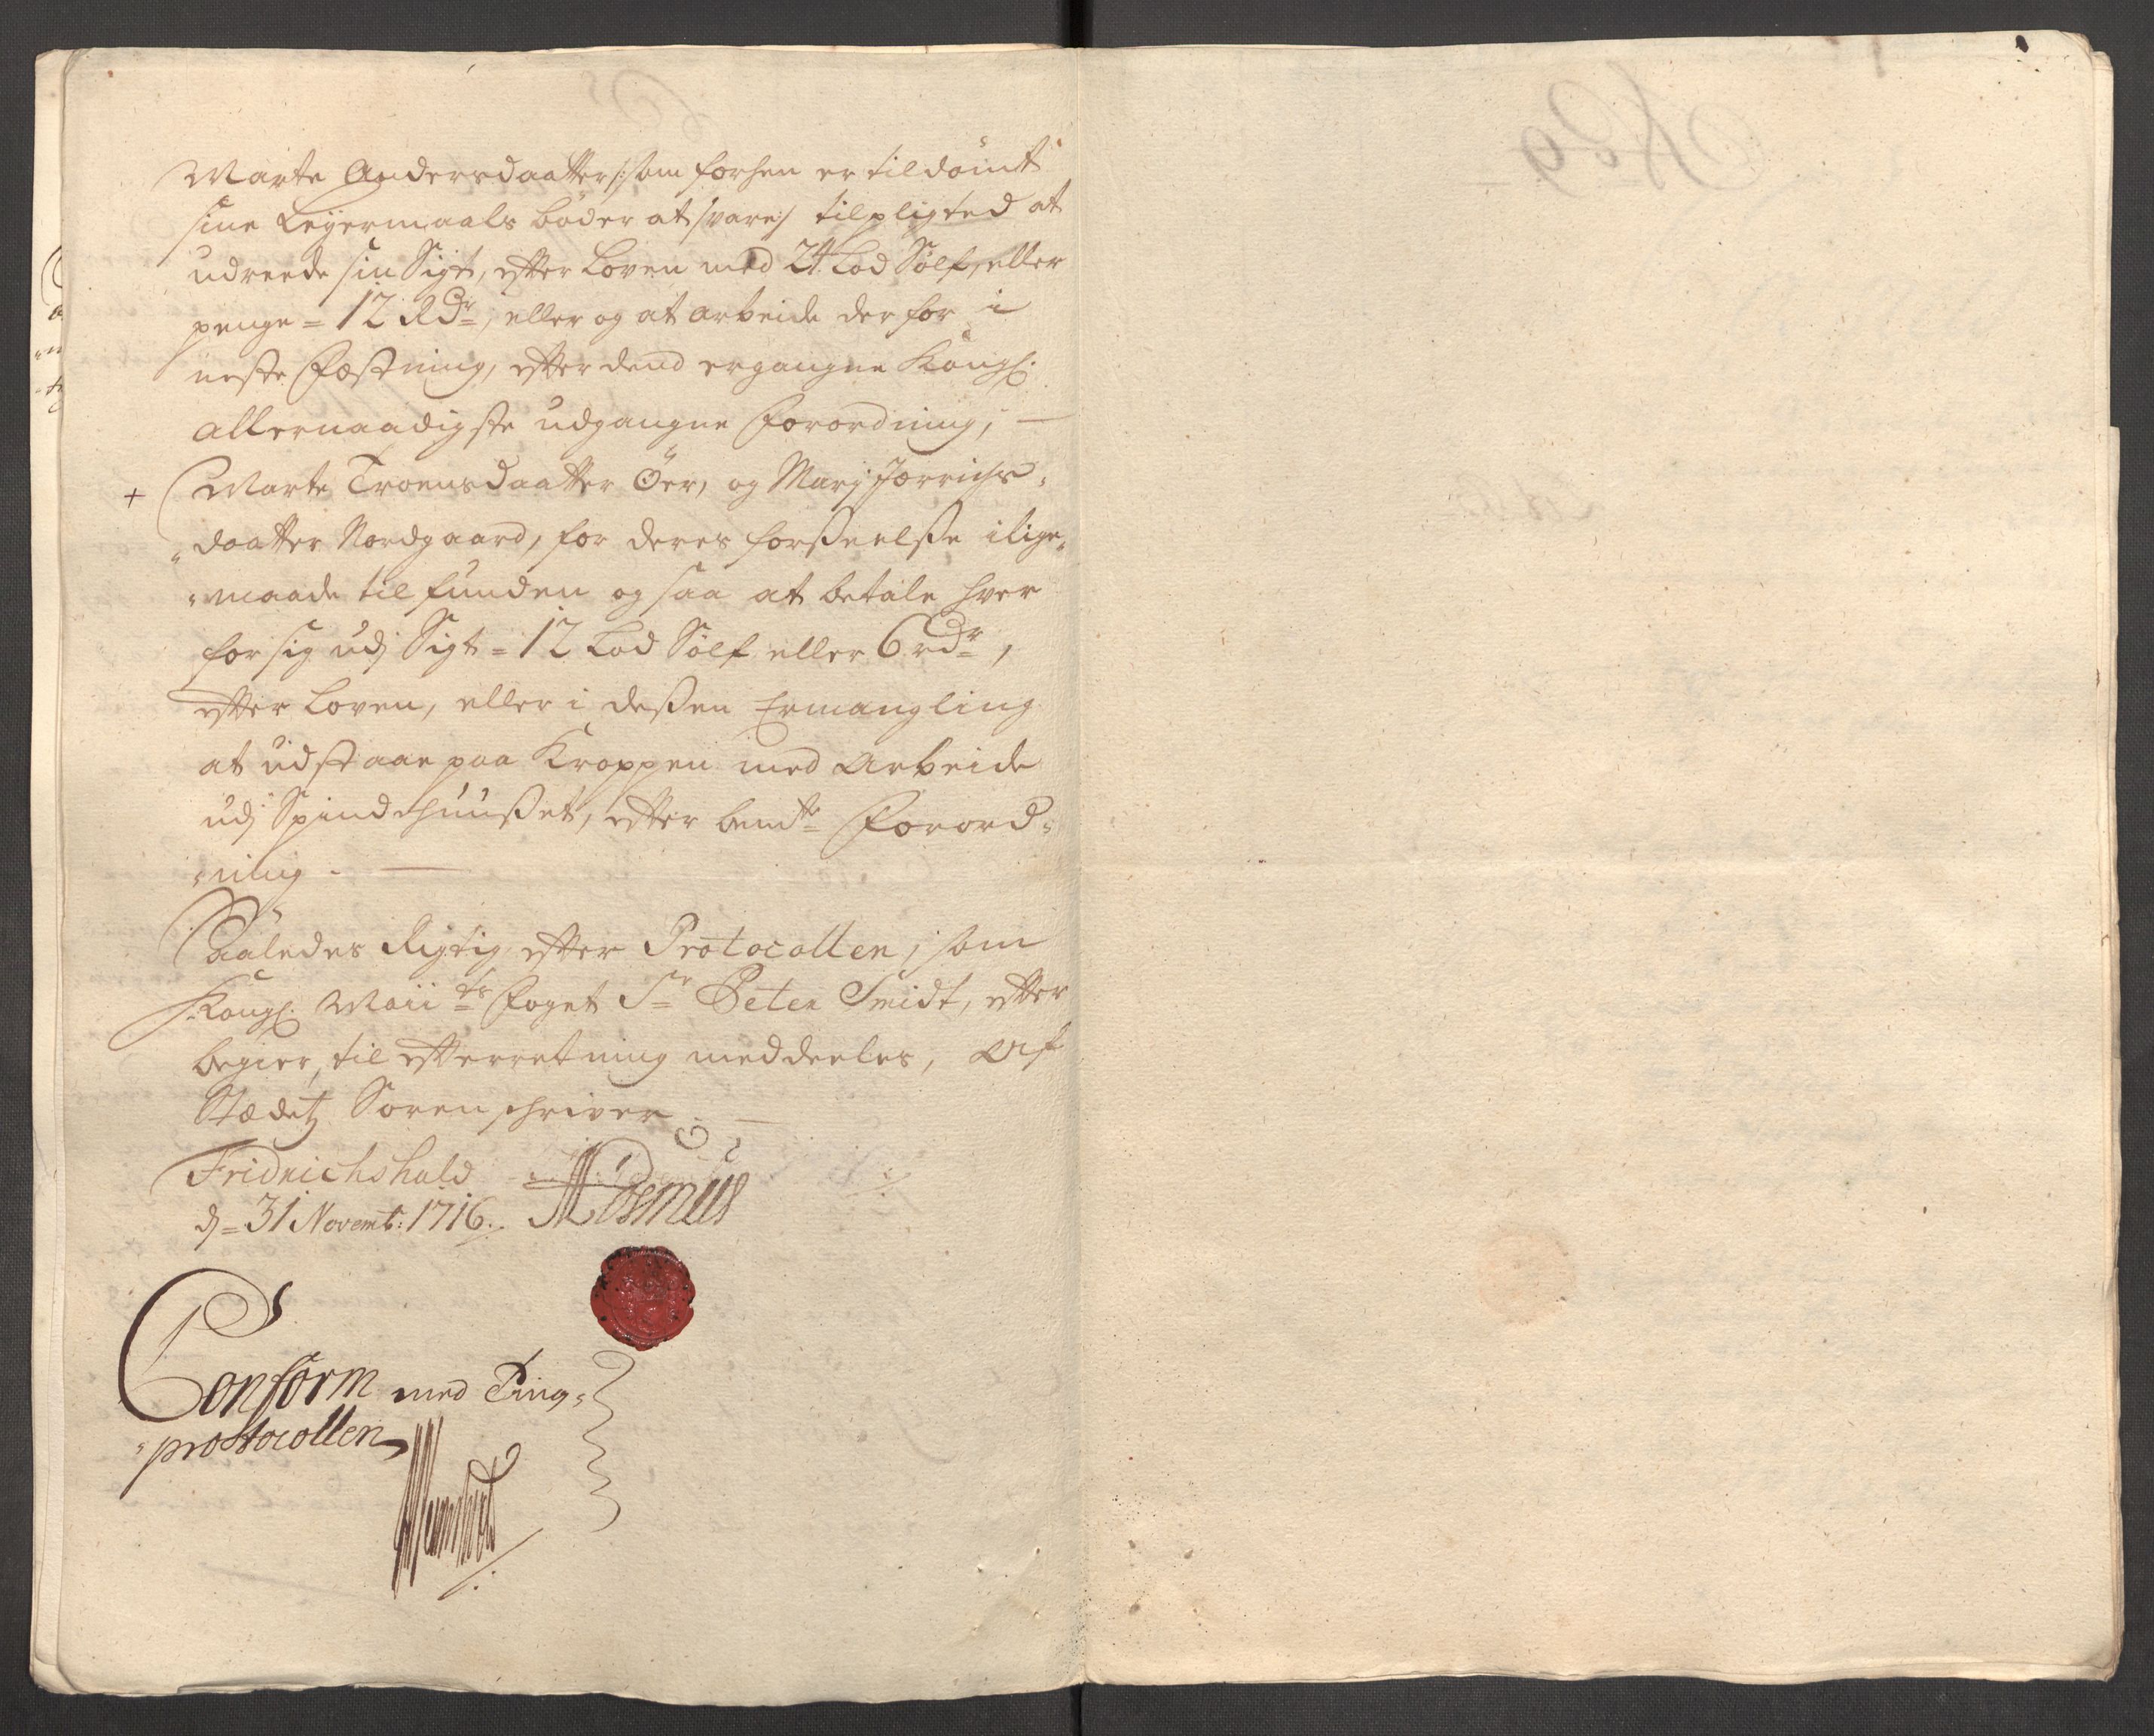 Marte Andersdaatter /: som forhen er tildömt
sine Leyermaals böder at svare :/ tilpligted at
udreede sin Sigt, efter Loven med 24 Lod Sölf, eller
penge = 12 Rdr, eller og at arbeide der for i
neste Fæstning, efter dend ergangne Kongl:
allernaadigste udgangne Forordning, —
+ Marte Troensdaatter Öer, og Marj Jörrichs-
daatter Nordgaard, for deres forßeelße i lige-
maade tilfunden og saa at betale hver
for sig udj Sigt = 12 Lod Sölf eller 6 rdr,
efter Loven, eller i deßen Ermangling
at udstaae paa Kroppen med Arbeide
udj Spindehuußet, efter bemte Forord-
ning. —
Saaledes Rigtig efter Protocollen, som
Kongl: Maiits Foget Sr Peter Smidt, efter
begier, til efterretning meddeeles, Af
Stædetz Sorenschriver. —
Fridrichshald
d = 31 Novemb: 1716.
Conform med Ting-
protocollen